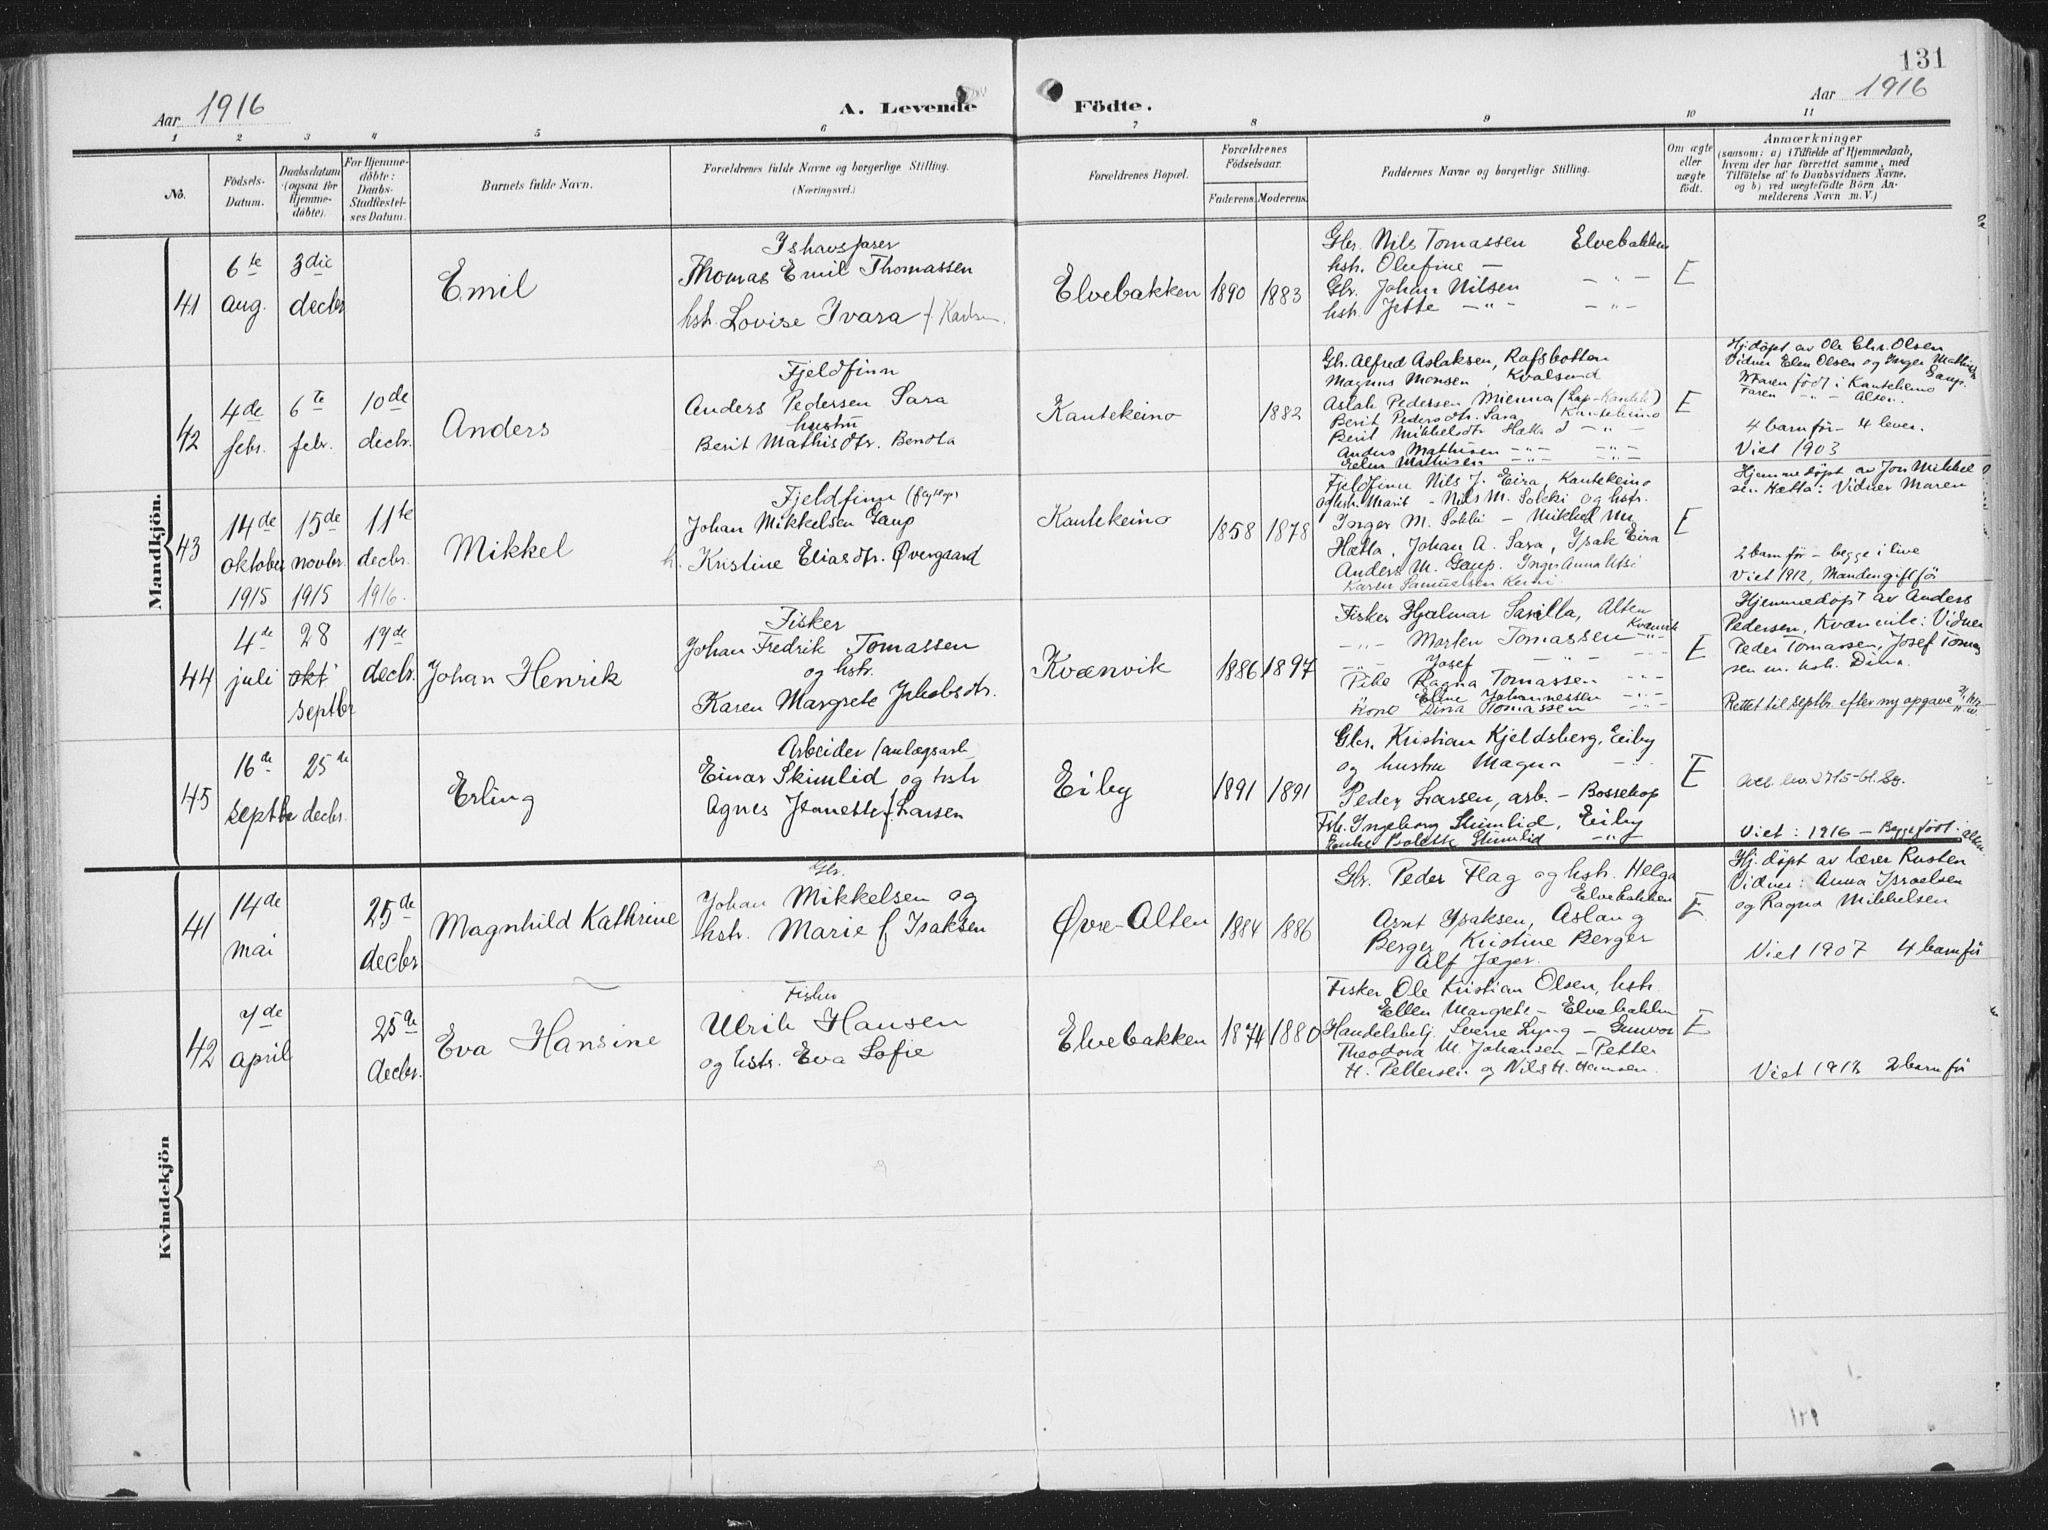 131
Aar 1916
A. Levende Födte.
Aar 1916
1 2 3 4 5 6 7 8 9 10 11
No.
Födsels-
Datum.
Daabsdatum
(ogsaa for
Hjemme-
döbte).
For Hjemme-
döbte:
Daabs-
Stadfæstel-
ses Datum.
Barnets fulde Navn.
Forældrenes fulde Navne og borgerlige Stilling.
(Næringsvei.)
Forældrenes Bopæl.
Forældrenes
Födselsaar.
Faderens. Moderens.
Faddernes Navne og borgerlige Stilling.
Om ægte
eller
uægte
födt.
Anmærkninger
(saasom: a) i Tilfælde af Hjemmedaab,
hvem der har forrettet samme, med
Tilföielse af to Daabsvidners Navne,
og b) ved uægtefödte Börn An-
melderens Navn m. V.)
Mandkjön.
41
6te
aug.
3die
decbr
Emil
Ishavsfarer
Thomas Emil Thomassen
hstr. Lovise Ivara f. Karlsen.
Elvebakken
1890
1883
Gbr. Nils Tomassen Elvebakken
hstr. Olufine —
Gbr. Johan Nilsen — " —
hstr. Jette — " — — " —
E
42
4de
febr.
6te
febr.
10de
decbr.
Anders
Fjeldfinn
Anders Pedersen Sara
hustru
Berit Mathisdtr. Bendta
Kautekeino
1882
Gbr. Alfred Aslaksen, Rafsbotten
Magnus Monsen, Kvalsund
Aslak Pedersen Mienna
Berit Pedersdtr. Sara Kautekeino
Berit Mikkelsdtr Hætta — " —
Anders Mathisen — " — — " —
Ellen Mathisen — " — — " —
E
Hj.döpt av Ole Chr. Olsen
Vidner Elen Olsen og Inger Mathis
Gaup.
Moren födt i Kautekeino
Faren — " — Alten.
4 barn för — 4 lever.
Viet 1903
43
14de
oktober
1915
15de
novbr.
1915
11te
decbr.
1916.
Mikkel
Fjeldfinn
Johan Mikkelsen Gaup
h. Kristine Eliasdtr. Øvergaard
Kautekeino
1858
1878
Fjeldfinn Nils J. Eira, Kautekeino
og hstr. Marit — Nils M. Sokki og hstr.
Inger M. Sokki — Mikkel M.
Hætta, Johan A. Sara, Isak Eira
Anders M. Gaup. Inger Anna Utsi
Karen Samuelsen
E
Hjemmedöpt av Jon Mikkel
sen Hætta: Vidner Maren
2 barn för — begge i live
Viet 1912, Manden gift för
44
4de
juli
28
okt
septbr
17de
decbr.
Johan Henrik
Fisker
Johan Fredrik Tomassen
og hstr.
Karen Margrete Jakobsdtr.
Kvænvik
1886
1897
Fisker Hjalmar Sarilla, Alten
Kvænvik
— " — Morten Tomassen — " —
— " — Josef — " —
Pike Ragna Tomassen — " —
Eline Johannessen — " —
Kone Dina Tomassen — " —
E
Hjemmedöpt av Anders
Pedersen, Kvænvik: Vidner
Peder Tomassen, Josef Tomas
sen m. hstr. Dina.
Rettet til septbr. efter ny opgave
45
16de
septbr
25de
decbr.
Erling
Arbeider (anlægsarb.
Einar Skimlid og hstr
Agnes Jeanette f. Larsen
Eiby
1891
1891
Gbr. Kristian Kjeldsberg, Eiby
og hustru Magna — " —
Peder Larsen, arb. — Bossekop
Frk. Ingeborg Skimlid, Eiby
Enke Bolette Skimlid — " —
E
Viet: 1916 — Begge födt i Alten.
Kvindekjön
41
14de
mai
25de
decbr
Magnhild Kathrine
Gbr.
Johan Mikkelsen og
hstr. Marie f Isaksen
Øvre-Alten
1884
1886
Gbr. Peder Flag og hstr. Helga
Elvebakken
Arnt Isaksen, Aslaug
Berger, Kristine Berger
Alf Jæger.
E
Hj. döpt av lærer Rusten
Vidner: Anna Israelsen
og Ragna Mikkelsen
Viet 1907 4 barn för
42
7de
april
25de
decbr.
Eva Hansine
Fisker
Ulrik Hansen
og hstr. Eva Sofie
Elvebakken
1874
1880
Fisker Ole Kristian Olsen, hstr.
Ellen Margrete — Elvebakken
Handelsbetj. Sverre Lyng — Gunvor
Theodora M. Johansen — Petter
H. Pettersen og Nils H. Hansen.
E
Viet 1912 2 barn för